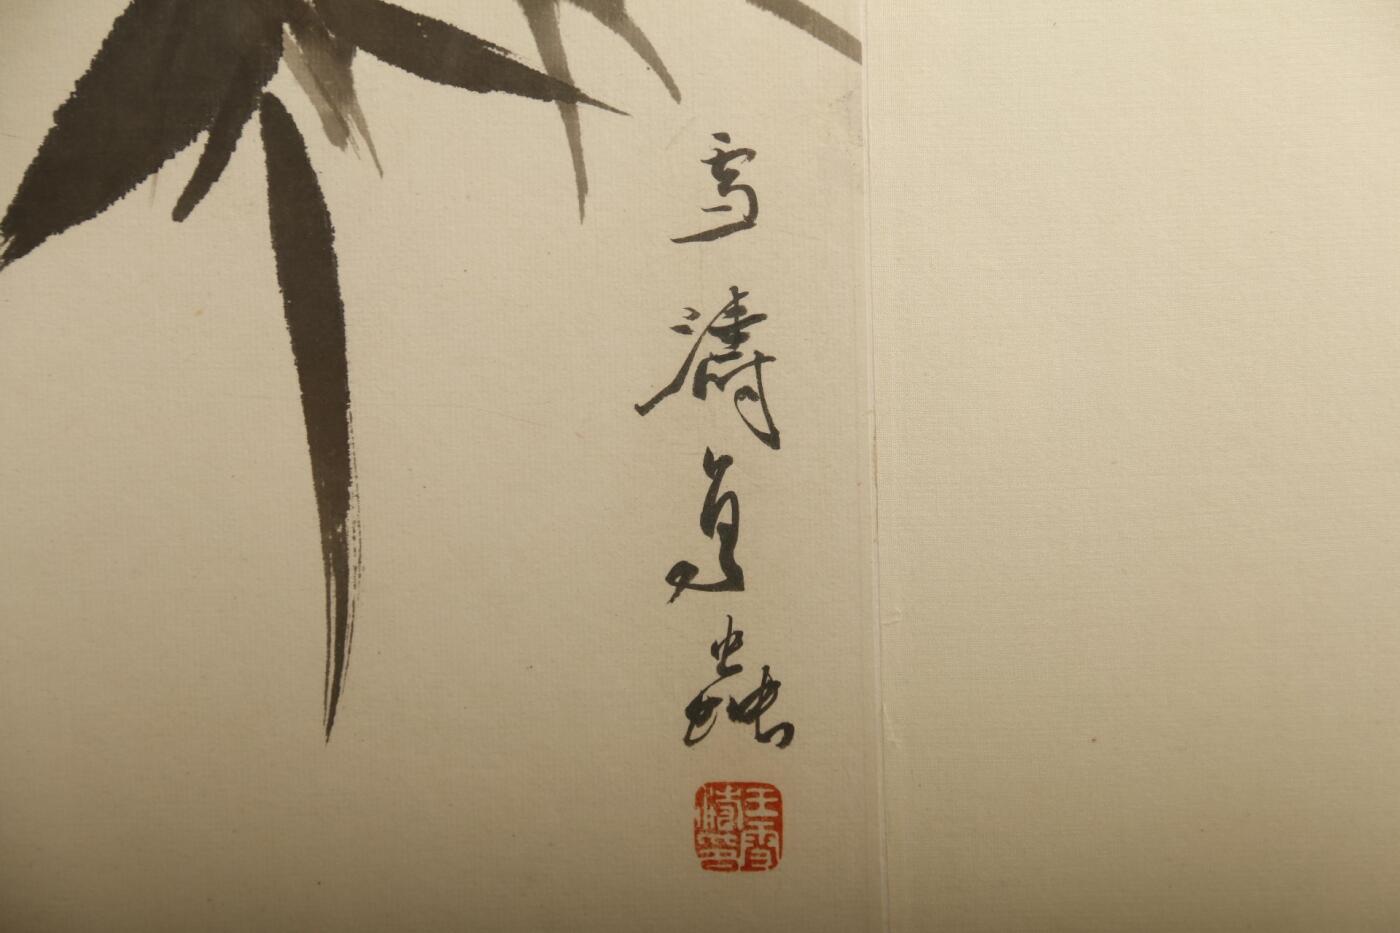 雪濤寫蟲
王雪濤印